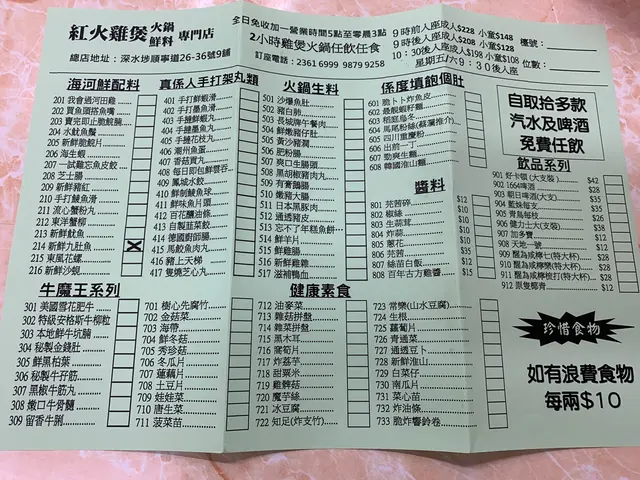 紅火雞煲 火鍋鮮料 專門店
總店地址：深水埗順寧道26-36號9舖
全日免收加一營業時間5點至零晨3點
2小時雞煲火鍋任飲任食
訂座電話：2361 6999 9879 9258
9時前入座成人$228 小童$148
9時後入座成人$208 小童$128
10:30後入座成人$198 小童$108
星期五/六9:30後入座
檯號：
位數：
海河鮮配料
201 我會過河田雞
202 買魚頭搭魚嘴
203 賣完即止脆鯇腩
204 水魷魚鬚
205 新鮮脆鯇片
206 海生蝦
207 一試難忘魚皮餃
208 芝士腸
209 新鮮豬紅
210 手打鯪魚滑
211 流心蟹粉丸
212 東洋蟹柳
213 新鮮魷魚
214 新鮮九肚魚
215 東風花螺
216 新鮮沙蜆
真係人手打架丸類
401 手打鮮蝦滑
402 手打墨魚滑
403 手撻鮮蝦丸
404 手撻墨魚丸
405 手撻花枝丸
406 潮州魚蛋
407 香菇貢丸
408 每日即包鮮雲吞
409 鳳城水餃
410 鮮制鯪魚球
411 鮮味魚片頭
412 百花釀油條
413 自製韮菜餃
414 德國廚師腸
415 馬鮫魚肉丸
416 豬上天梯
417 隻燒芝心丸
火鍋生料
501 沙爆魚肚
502 豬白腩
503 長城牌午餐肉
504 鮮嫩豬仔肚
505 黃沙豬潤
506 肥粉腸
507 爽口生腸頭
508 黑胡椒豬肉丸
509 有膏鵝腸
510 嫩豬大腸
511 日本黑豚肉
512 通透豬皮
513 忘不了年糕魚餅
514 鮮羊片
515 鮮雞腸
516 新鮮雞雜
517 滋補鴨血
係度填飽個肚
601 脆卜卜炸魚皮
602 最靚蝦籽麵
603 稻庭烏冬
604 馬尾粉絲(蘇灑推介)
605 四川重慶粉
606 出前一丁
607 勁爽生麵
608 韓國淮山麵
醬料
801 芫茜碎 $12
802 椒絲 $10
803 生蒜茸 $10
804 炸蒜 $10
805 蔥花 $10
806 芫茜 $35
807 絲苗白飯 $12
808 百年古方雞醬 $15
自取拾多款
汽水及啤酒
免費任飲
飲品系列
901 好卡頓(大支裝) $42
902 1664啤酒 $28
903 朝日啤酒(大支) $35
904 藍妹每支 $35
905 青島每枝 $26
906 健力士(大支裝) $38
907 加多寶 $12
908 天地一號 $12
909 醒為咸檸七(特大杯) $38
910 醒為咸檸樂(特大杯) $38
911 醒為咸檸梳打(特大杯) $38
912 原隻椰青 $28
牛魔王系列
301 美國雪花肥牛
302 特級安格斯牛柳粒
303 本地鮮牛坑腩
304 秘製金錢肚
305 鮮黑柏葉
306 秘製牛孖筋
307 黑椒牛筋丸
308 嫩口牛骨髓
309 留香牛脷
健康素食
701 樹心先腐竹
702 金菇菜
703 海帶
704 鮮冬菇
705 秀珍菇
706 冬瓜片
707 蓮藕片
708 土豆片
709 娃娃菜
710 唐生菜
711 菠菜苗
712 油麥菜
713 雜菇拼盤
714 雜菜拼盤
715 黑木耳
716 窩筍片
717 炸荔芋
718 甜粟米
719 雞髀菇
720 魔芋絲
721 冰豆腐
722 知足(炸支竹)
723 常樂(山水豆腐)
724 生根
725 蘿蔔片
726 青通菜
727 通透豆卜
728 新鮮淮山
729 白菜仔
730 南瓜片
731 菜心苗
732 炸油條
733 脆炸響鈴卷
珍惜食物
如有浪費食物
每兩$10